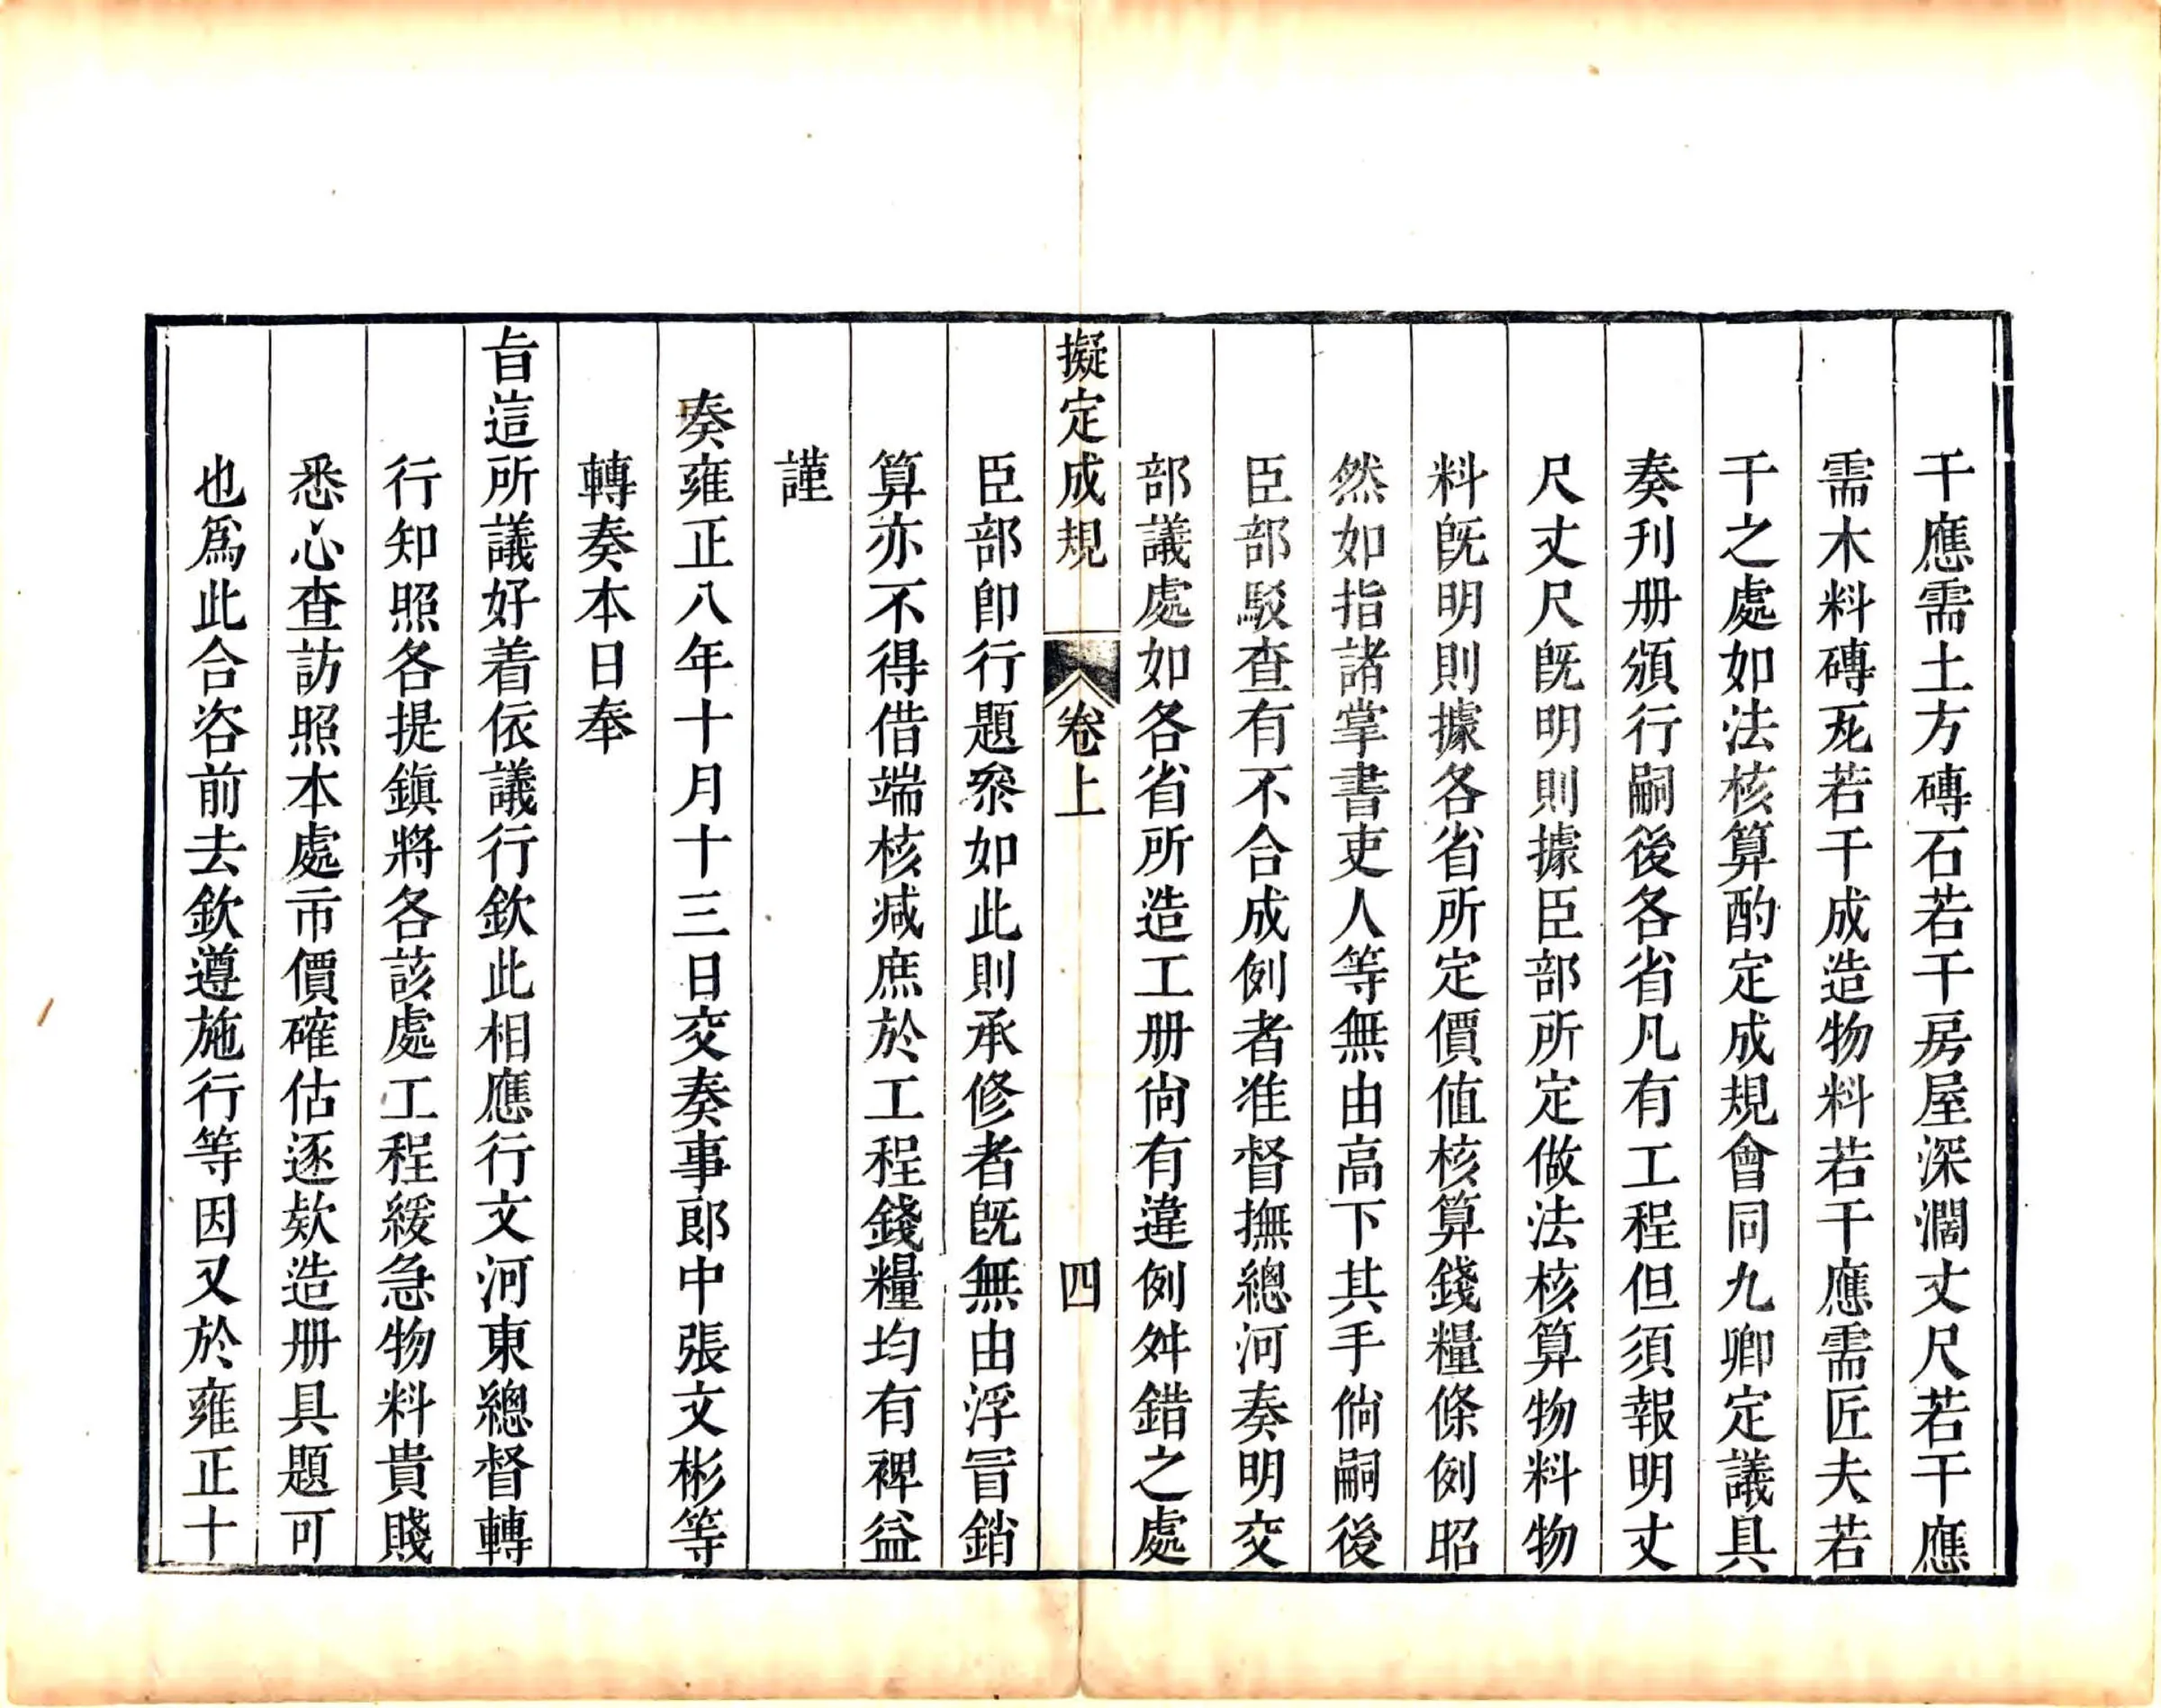 干應需土方磚石若干房屋深濶丈尺若干應
需木料磚瓦若干成造物料若干應需匠夫若
干之處如法核算酌定成規會同九卿定議具
奏刋册頒行嗣後各省凡有工程但須報明丈
尺丈尺旣明則據臣部所定做法核算物料物
料旣明則據各省所定價值核算錢糧條例昭
然如指諸掌書吏人等無由高下其手倘嗣後
臣部駁查有不合成例者准督撫總河奏明交
部議處如各省所造工册尙有違例舛錯之處
擬定成規 卷上 四
臣部卽行題叅如此則承修者旣無由浮冒銷
算亦不得借端核减庶於工程錢糧均有裨益
謹
奏雍正八年十月十三日交奏事郎中張文彬等
轉奏本日奉
旨這所議好着依議行欽此相應行文河東總督轉
行知照各提鎭將各該處工程緩急物料貴賤
悉心查訪照本處市價確估逐欵造册具題可
也爲此合咨前去欽遵施行等因又於雍正十